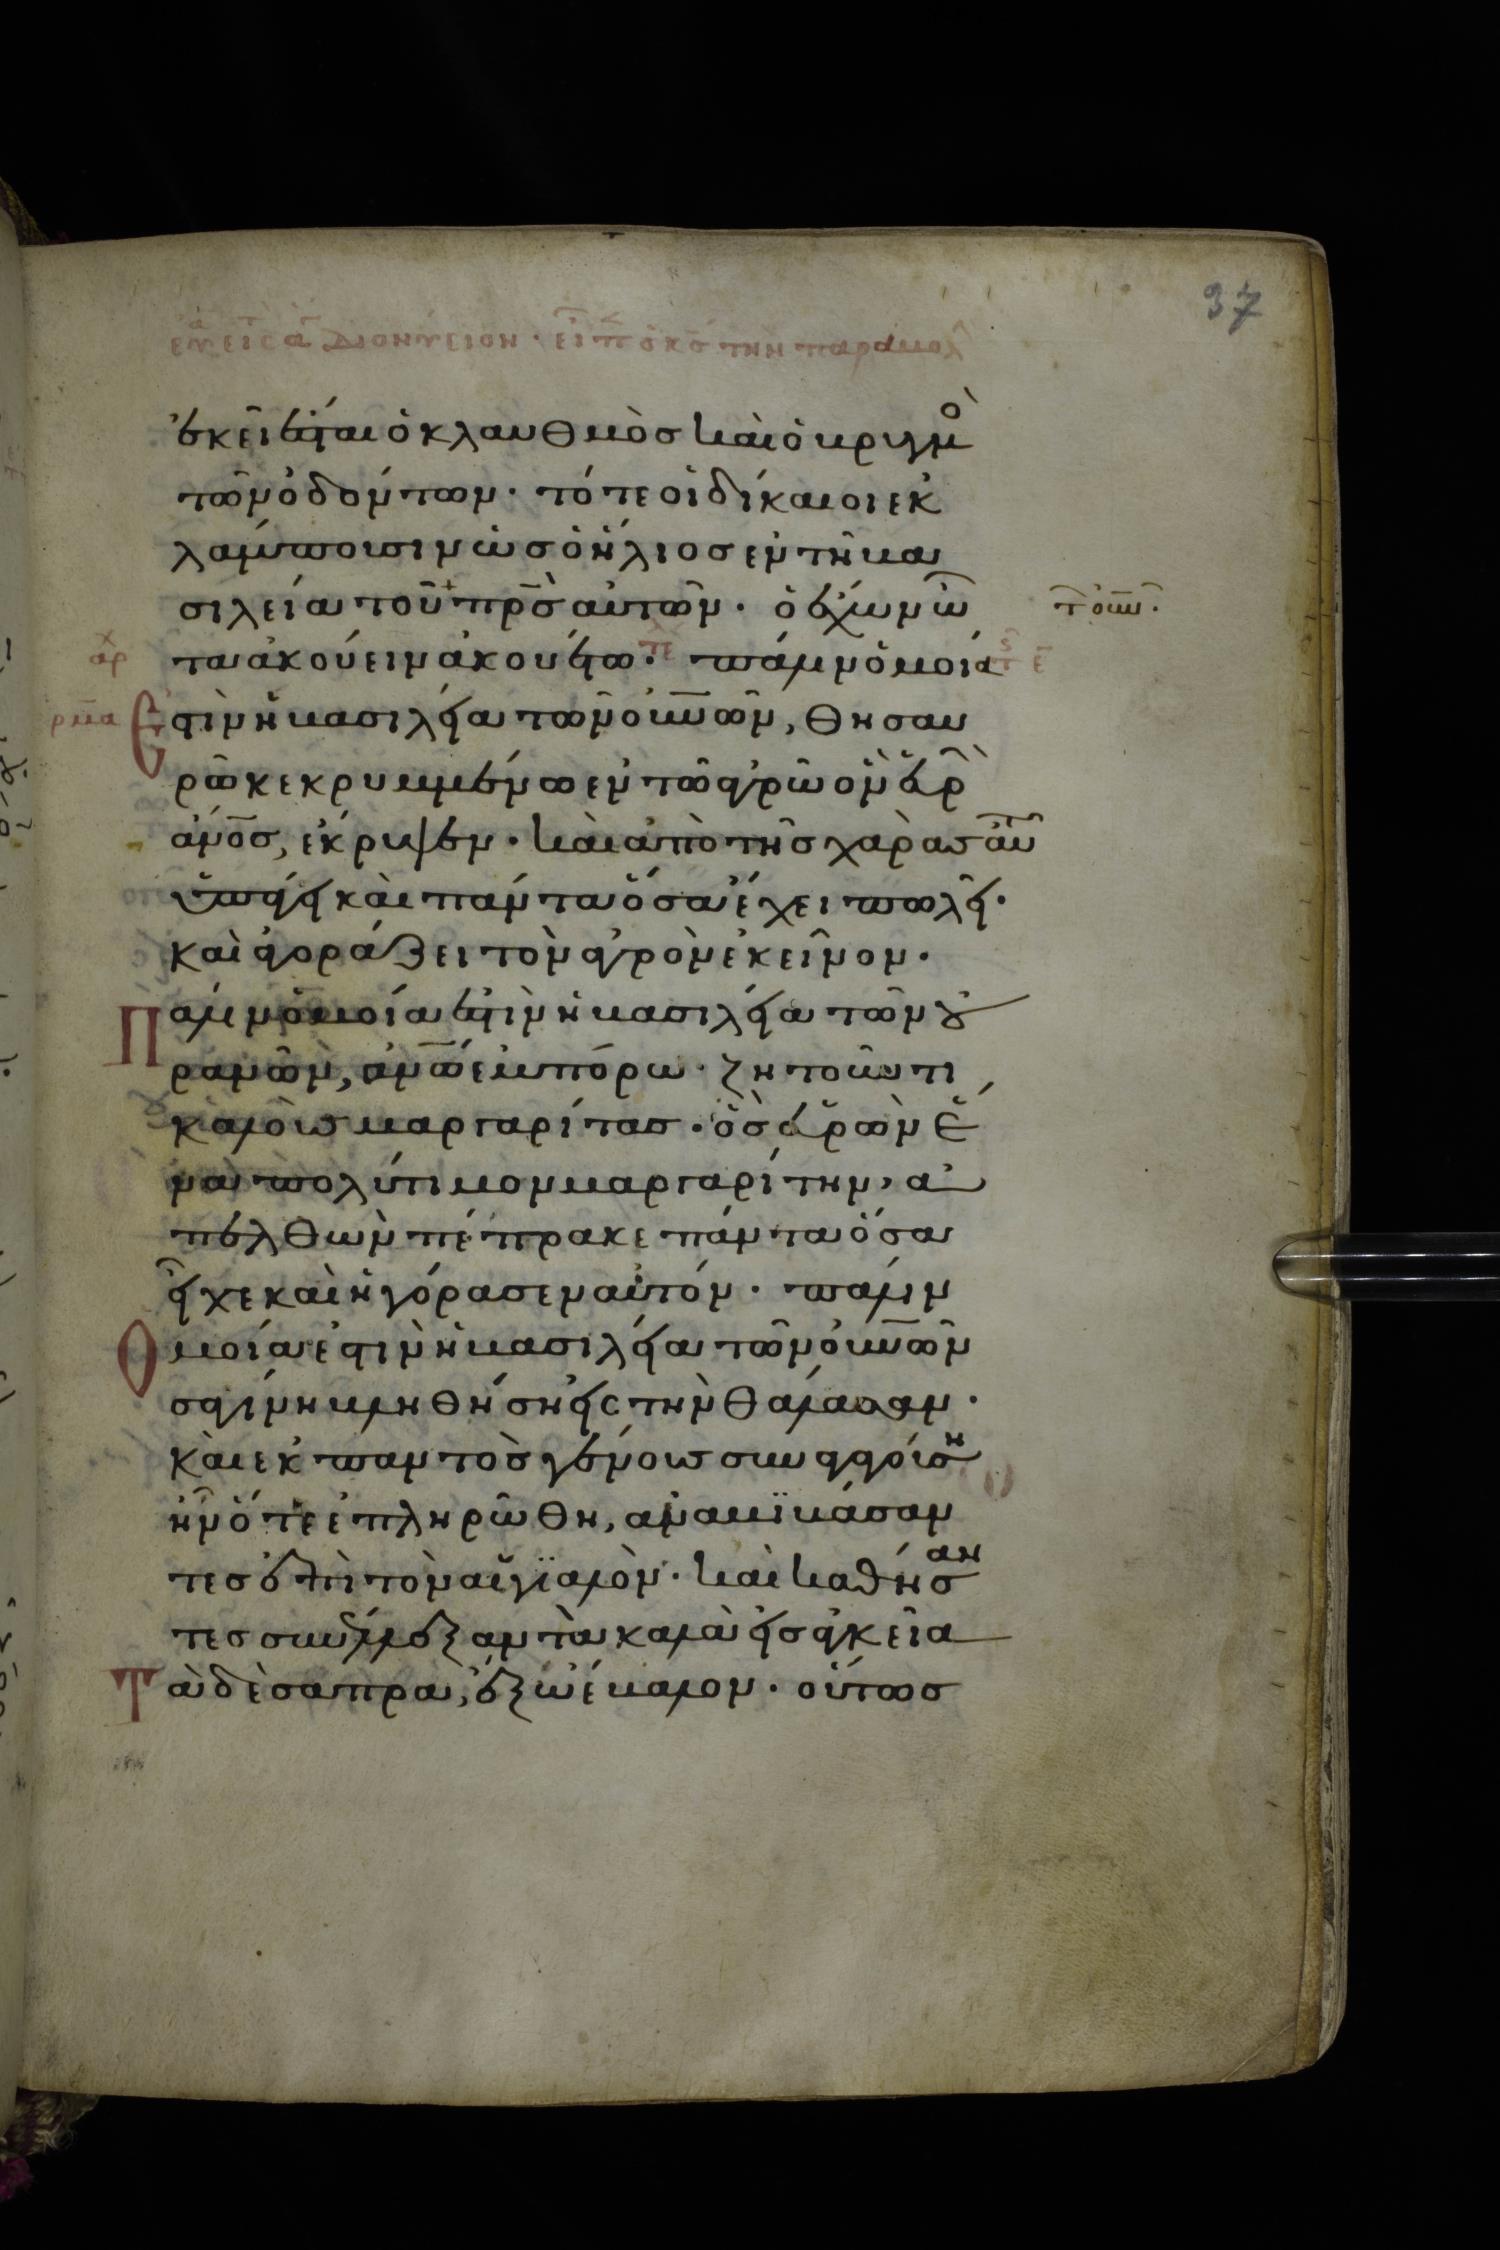 37
ἐκεῖ ἔσται ὁ κλαυθμὸσ καὶ ὁ βρυγμὸ
τῶν ὀδόντων · τότε οἱ δίκαιοι ἐκ
λάμψουσιν ὡσ ὁ ἥλιοσ ἐν τῆ βα
σιλεία τοῦ πρ̅σ αὐτῶν · ὁ ἔχων ὦ
τα ἀκούειν ἀκουέτω · πάλιν ὁμοία
ἐστὶν ἡ βασιλεία τῶν ου̅νῶν, θησαυ
ρῶ κεκρυμμένω ἐν τῶ ἀγρῶ ὃν εὑρ
ἀν̅οσ, ἔκρυψεν · καὶ ἀπὸ τῆσ χαρᾶσ αὐτ
ὑπάγει καὶ πάντα ὅσα ἔχει πωλεῖ ·
καὶ ἀγοράζει τὸν ἀγρὸν ἐκεῖνον ·
Πάλιν ὁμοία ἐστὶν ἡ βασιλεία τῶν οὐ
ρανῶν, ἀν̅ω ἐμπόρω · ζητοῦντι
καλοὺσ μαργαρίτασ · ὃσ εὑρὼν ἕ
να πολύτιμον μαργαρίτην, ἀ
πελθὼν πέπρακε πάντα ὅσα
εἶχε καὶ ἠγόρασεν αὐτόν · πάλιν
Ὁμοία ἐστὶν ἡ βασιλεία τῶν ου̅νῶν
σαγήνη βληθείση εἰσ τὴν θάλασσαν ·
καὶ ἐκ παντὸσ γένουσ συναγαγούση
ἣν ὅτε ἐπληρώθη, ἀναβϊβάσαν
τεσ ἐπὶ τὸν αἰγϊαλὸν · καὶ καθήσαν
τεσ συνέλεξαν τὰ καλὰ εἰσ ἀγγεῖα
Τὰ δὲ σαπρὰ, ἔξω ἔβαλον · οὕτωσ